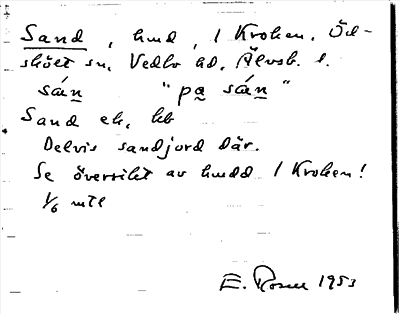 Sand, hmd, 1 Kroken, Öd-
sköct sn, Vedbo hd, Älvsb. l.
sán "pa sán"
Sand ek, hb
Delvis sandjord där.
Se översikt av hmdd 1 Kroken!
1/6 mtl
E. Rosen 1953